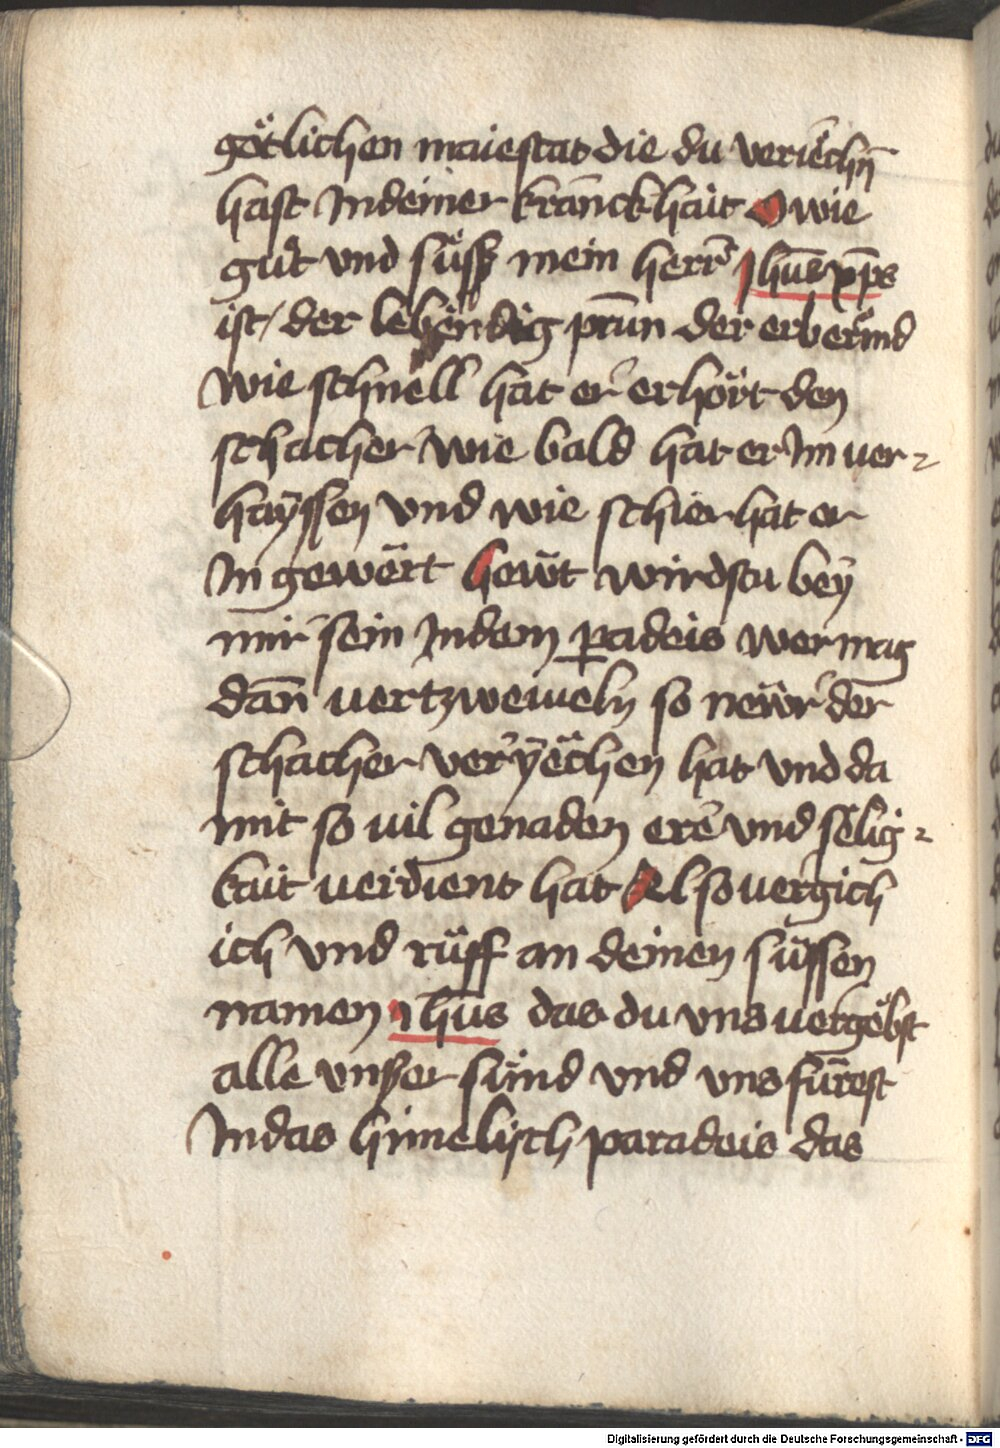 götlichen maiestat die du veriëchñ
hast Indeiner kranckhait O wie
gůt vnd süsß mein herr Jhus xps
ist / der lebendig prun der erbermd
Wie schnell hat er erhört den
schacher Wie bald hat er Im uer-
hayssen Vnd wie schier hat er
In gewert hewt wirdstu bey
mir sein Indem padeis wer mag
dan uertzweiueln so newr der
schacher ver̈yëchen hat vnd da
mit so uil genaden ere vnd sälig-
kait uerdient hat Also uergich
ich vnd rüff an deinen süssen
namen Jhus das du vns uergebst
alle vnßer sünd vnd vns fürest
Indas himelisch paradeis das
Digitalisierung gefördert durch die Deutsche Forschungsgemeinschaft - DFG